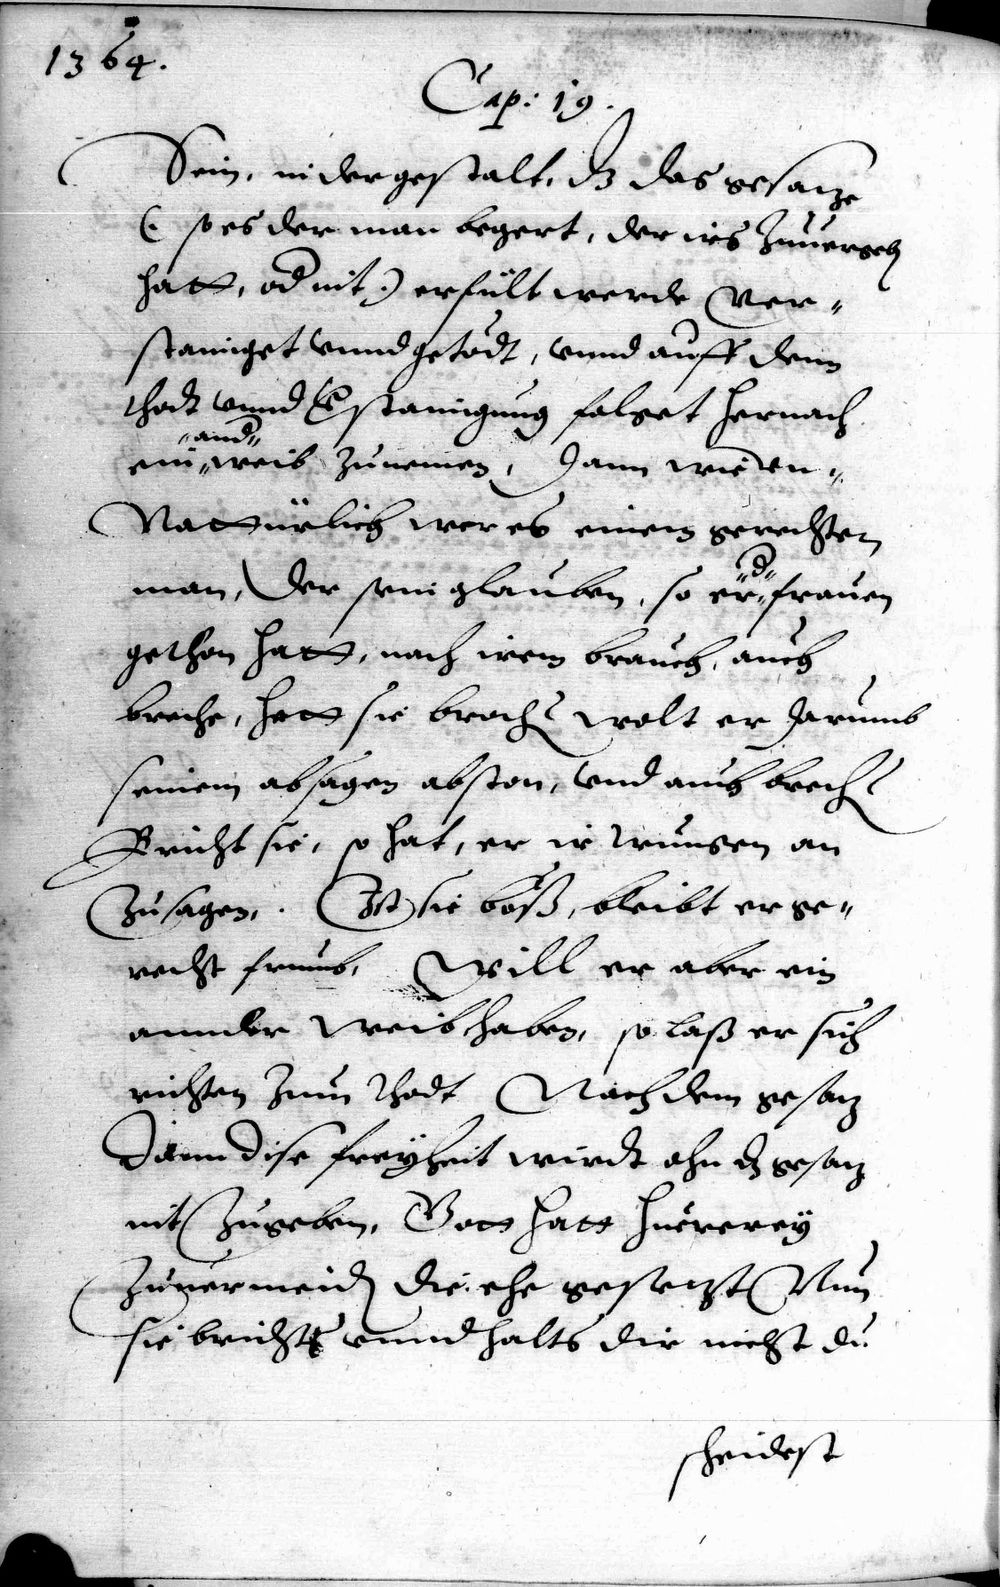 1364.
Cap: 19.
Sein, in der gestalt, dz das gesatze
(. so es der man begert, der irs Zuuergebn
hatt, od nit.) erfült werde Ver-
stainiget vnnd getödt, vnnd auff denn
thodt vnnd Verstainigung folget hernach
"and"
ein "weib Zunemen, Dann wie vn-
Nattürlich wer es einem gerechten
man, Der sein glauben, so er "d" frauen
gethon hatt, nach irem brauch, auch
breche, hatt sie brochen wolt er Darumb
seinem absagen abston, vnd auch brechen
Bricht sie, so hat, er ir
Zusagen, . Ist sie böß, bleibt er ge-
recht frumb, Will er aber ein
annder Weib haben, so laß er sich
richten Zum Thodt Nach dem gesatz
Dann dise freyheit wirdt ohn dz gesatz
nit Zugeben, Gott hatt huererey
Zuuermeiden die ehe gesetzt Nun
sie brichts vnnd halts dir nicht du
scheidest